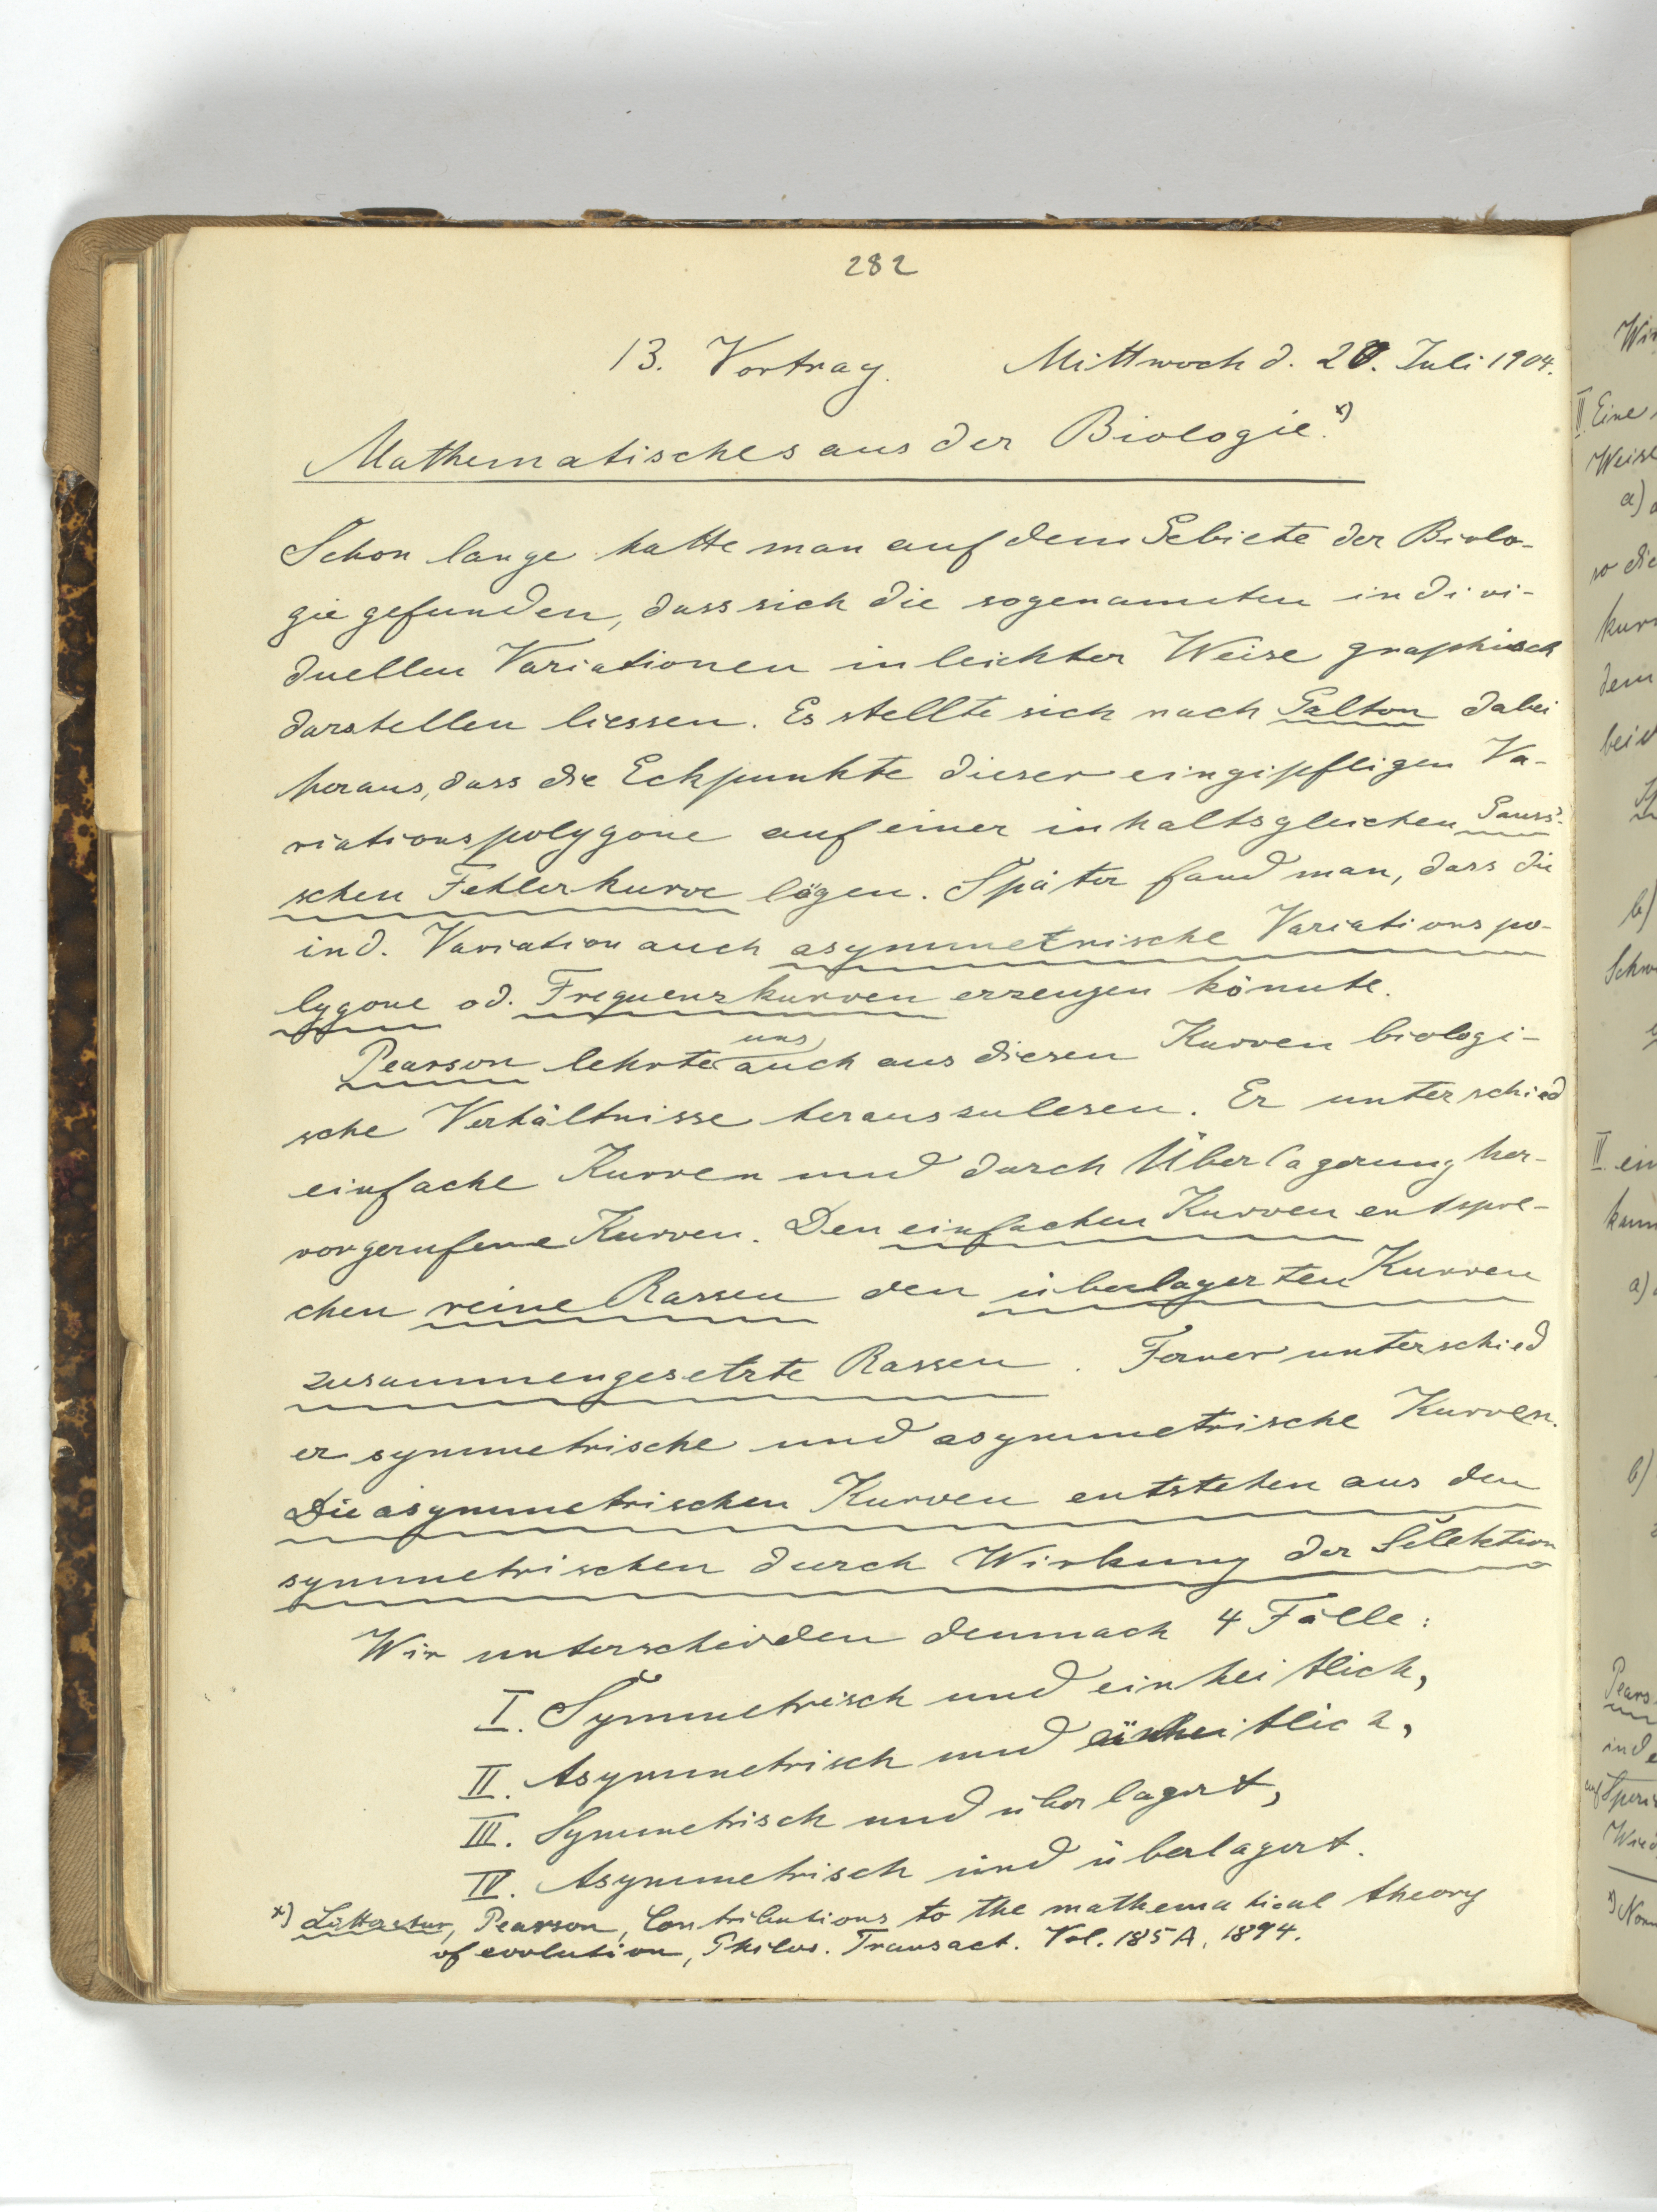 282
13. Vortrag. Mittwoch d. 20. Juli 1904.
Mathematisches aus der Biologie.x)
Schon lange hatte man auf dem Gebiete der Biolo-
gie gefunden, dass sich die sogenannten indivi-
duellen Variationen in leichter Weise graphisch
darstellen liessen. Es stellte sich nach Galton dabei
heraus, dass die Eckpunkte dieser eingipfligen Va-
riationspolygone auf einer inhaltsgleichen Gauss'-
schen Fehlerkurve lägen. Später fand man, dass die
ind. Variation auch asymmetrische Variationspo-
lygone od. Frequenzkurven erzeugen könnte.
Pearson lehrte uns auch aus diesen Kurven biologi-
sche Verhältnisse herauszulesen. Er unterschied
einfache Kurven und durch Überlagerung her-
vorgerufene Kurven. Den einfachen Kurven entspre-
chen reine Rassen den überlagerten Kurven
zusammengesetzte Rassen. Ferner unterschied
er symmetrische und asymmetrische Kurven.
Die asymmetrischen Kurven entstehen aus den
symmetrischen durch Wirkung der Selektion
Wir unterscheiden demnach 4 Fälle:
I. Symmetrisch und einheitlich,
II. Asymmetrisch und einheitlich,
III. Symmetrisch und überlagert,
IV. Asymmetrisch und überlagert.
x) Litteratur, Pearson, Contributions to the mathematical theory
of evolution, Philos. Transact. Vol. 185 A, 1894.
II Eine
Weise
a)
so die
dem
b)
IV. ein
a)
b)
Pears